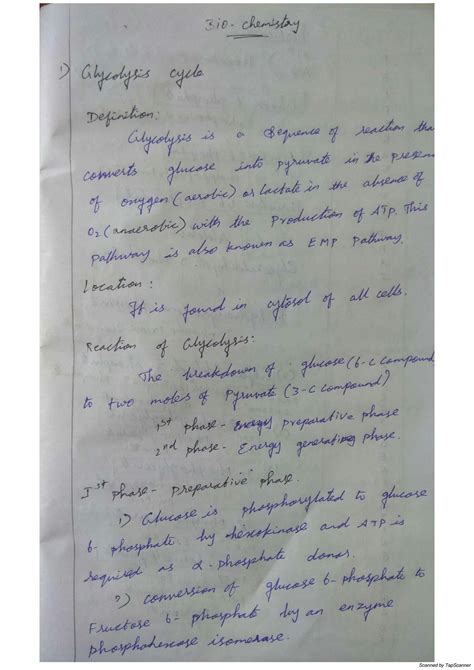 Bio-chemistry
1) Glycolysis cycle
Definition:
Glycolysis is a sequence of reaction tha
converts glucose into pyruvate in the presen
of oxygen (aerobic) or lactate in the absence of
O2 (anaerobic) with the production of ATP. This
pathway is also known as EMP pathway.
Location:
It is found in cytosol of all cells.
Reaction of Glycolysis:
The breakdown of glucose (6-C compound
to two moles of pyruvate (3-C compound)
1st phase- preparative phase
2nd phase- Energy generating phase.
Ist phase- preparative phase.
1) Glucose is phosphorylated to glucose
6- phosphate by hexokinase and ATP is
required as α-phosphate donar.
2) conversion of glucose 6-phosphate to
Fructose 6- phosphate by an enzyme
isomerase.
Scanned by TapScanner